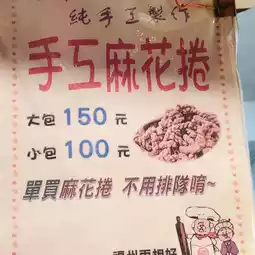 純手工製作
手工麻花捲
大包 150 元
小包 100 元
單買麻花捲 不用排隊唷~